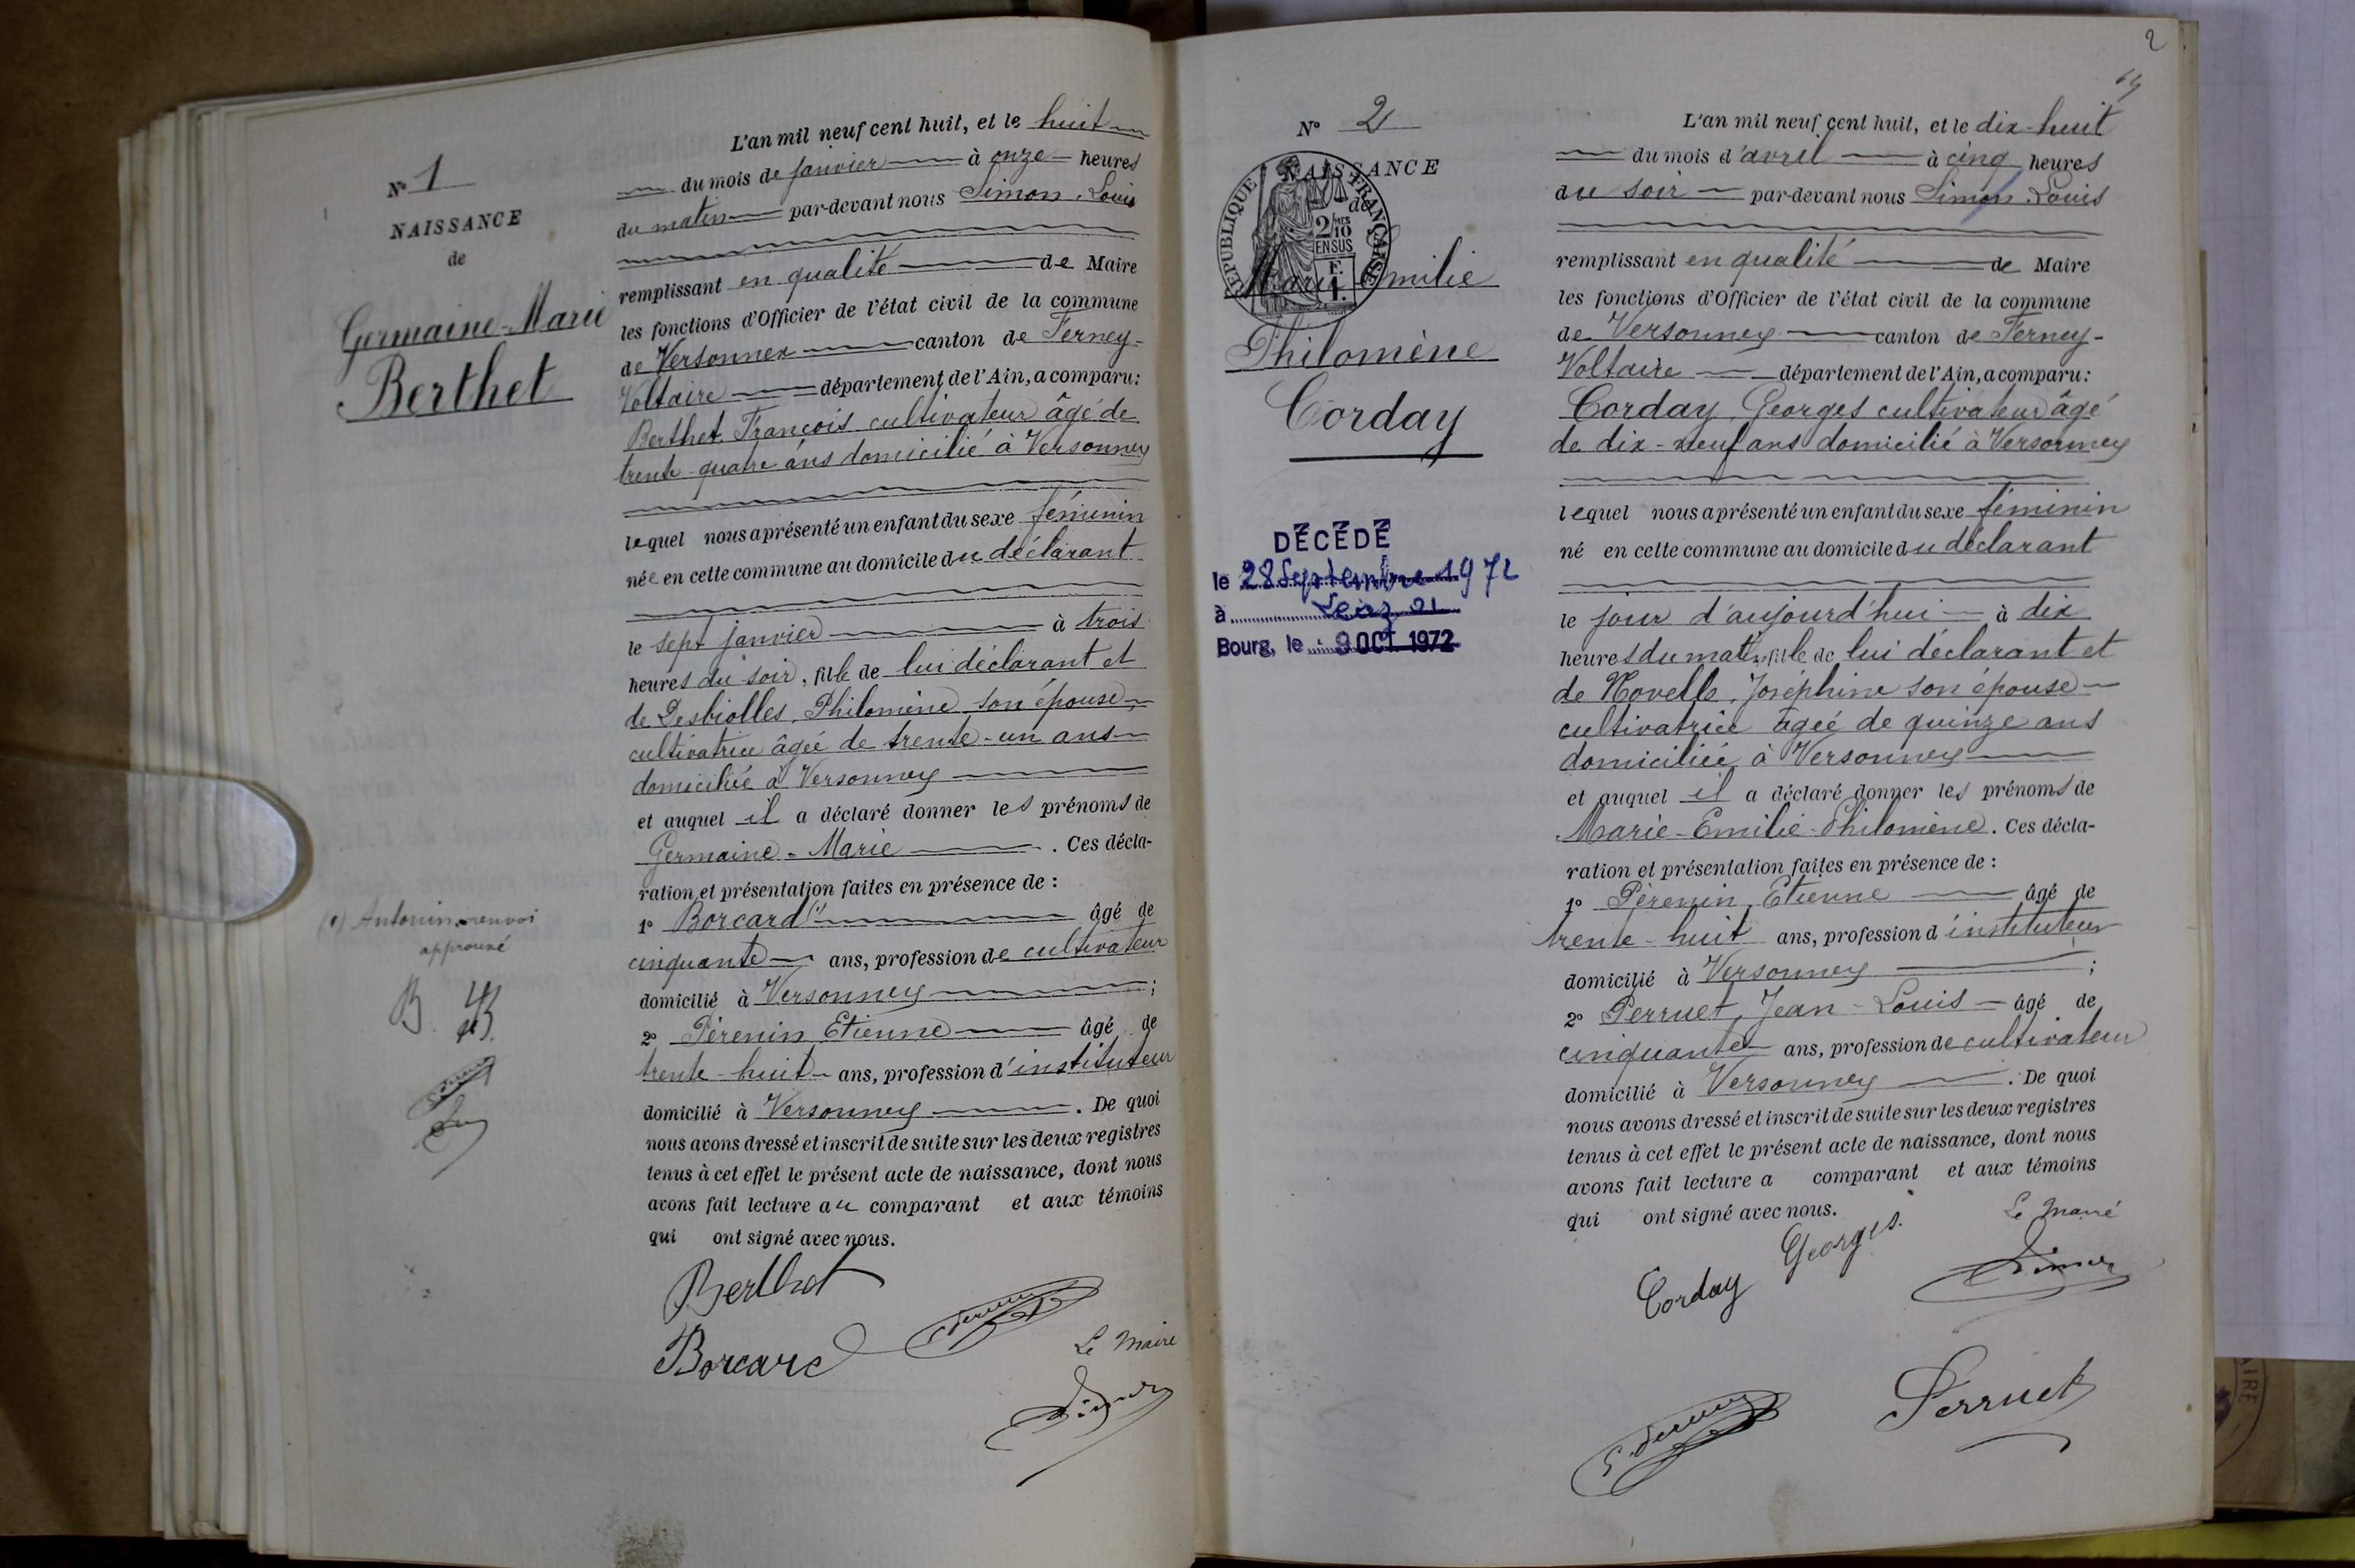 N° 1
NAISSANCE
de
Germaine-Marie
Berthet
L'an mil neuf cent huit, et le huit
du mois de janvier à onze heures
du matin par-devant nous Simon, Louis
remplissant en qualité de Maire
les fonctions d'Officier de l'état civil de la commune
de Versonnex canton de Ferney-
Voltaire département de l'Ain, a comparu:
Berthet François cultivateur âgé de
trente-quatre ans domicilié à Versonnex
lequel nous a présenté un enfant du sexe féminin
née en cette commune au domicile du déclarant
le sept janvier à trois
heures du soir, fille de lui déclarant et
de Desbiolles, Philomène son épouse
cultivatrice âgée de trente-un ans
domiciliée à Versonnex
et auquel il a déclaré donner les prénoms de
Germaine-Marie. Ces décla-
ration et présentation faites en présence de :
1° Borcard (1) âgé de
cinquante ans, profession de cultivateur
domicilié à Versonnex ;
2° Pérenin Etienne âgé de
trente-huit ans, profession d'instituteur
domicilié à Versonnex. De quoi
nous avons dressé et inscrit de suite sur les deux registres
tenus à cet effet le présent acte de naissance, dont nous
avons fait lecture au comparant et aux témoins
qui ont signé avec nous.
(1) Antonin renvoi
approuvé
B.
Berthet
Borcard
Le Maire
2
N° 2
NAISSANCE
de
REPUBLIQUE FRANÇAISE
2/10 MES
EN SUS
Marie Emilie
Philomène
Corday
DÉCÉDÉ
le 28 Septembre 1972
à
Bourg, le 9 OCT. 1972
L'an mil neuf cent huit, et le dix-huit
du mois d'avril à cinq heures
du soir par-devant nous Simon Louis
remplissant en qualité de Maire
les fonctions d'Officier de l'état civil de la commune
de Versonnex canton de Ferney-
Voltaire département de l'Ain, a comparu:
Corday, Georges cultivateur âgé
de dix-neuf ans domicilié à Versonnex
lequel nous a présenté un enfant du sexe féminin
né en cette commune au domicile du déclarant
le jour d'aujourd'hui à dix
heures du matin, fille de lui déclarant et
de Novelle, Joséphine son épouse
cultivatrice âgée de quinze ans
domiciliée à Versonnex
et auquel il a déclaré donner les prénoms de
Marie-Emilie-Philomène. Ces décla-
ration et présentation faites en présence de :
1° Pérenin, Etienne âgé de
trente-huit ans, profession d'instituteur
domicilié à Versonnex ;
2° Perruet, Jean-Louis âgé de
cinquante ans, profession de cultivateur
domicilié à Versonnex. De quoi
nous avons dressé et inscrit de suite sur les deux registres
tenus à cet effet le présent acte de naissance, dont nous
avons fait lecture a comparant et aux témoins
qui ont signé avec nous.
Le Maire
Corday Georges.
Simon
Perruet